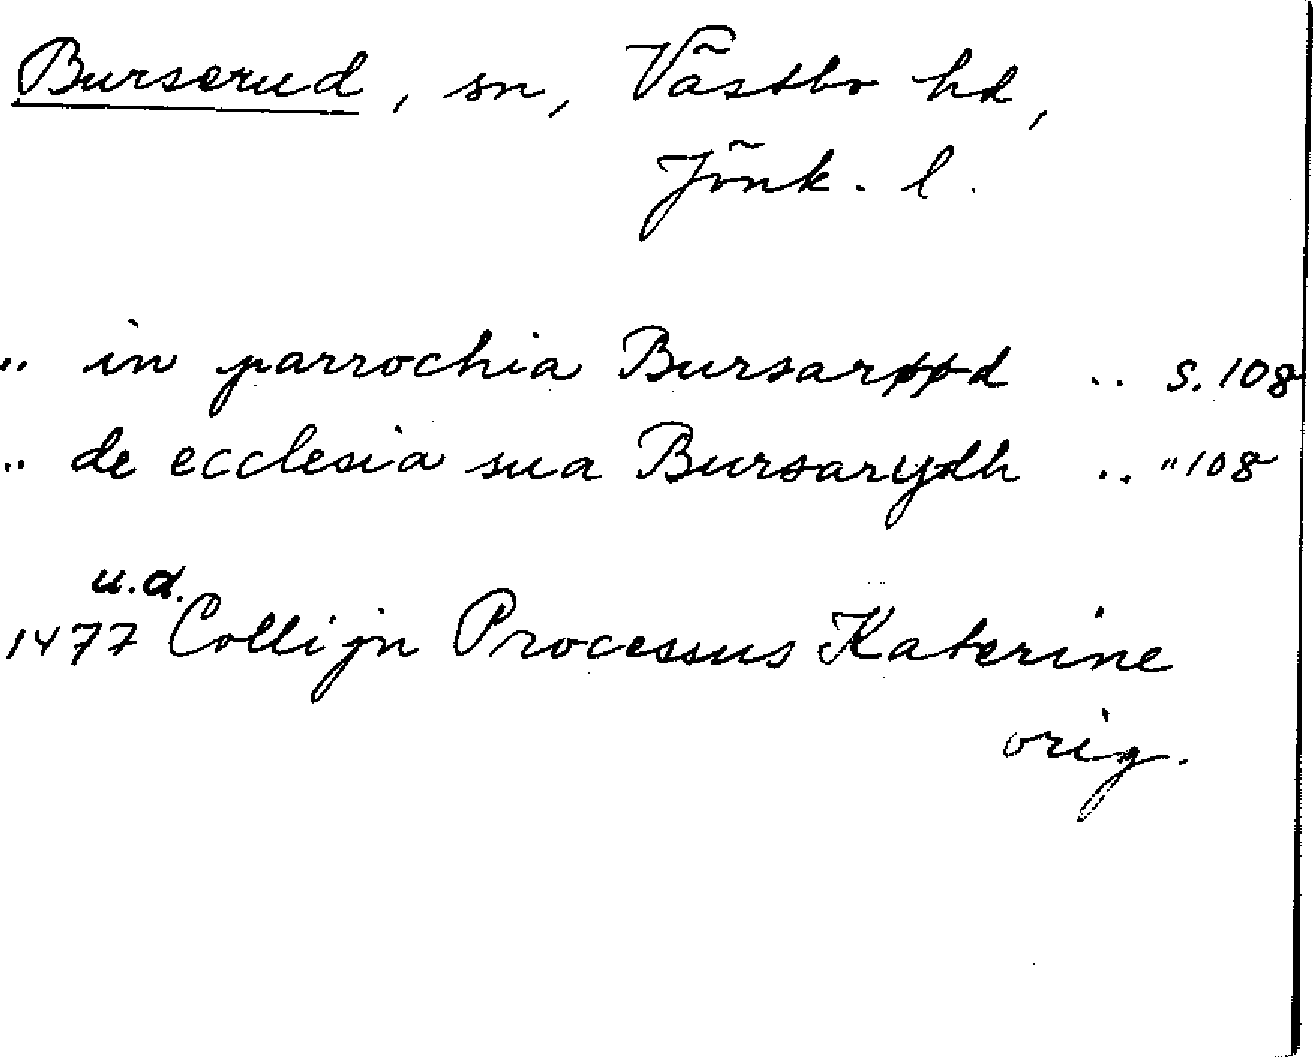 Burserud, sn, Västbo hd,
Jönk. l.
.. in parrochia Bursarøød .. s. 108
.. de ecclesia sua Bursarydh .. " 108
u.d.
1477 Collijn Processus Katerine
orig.